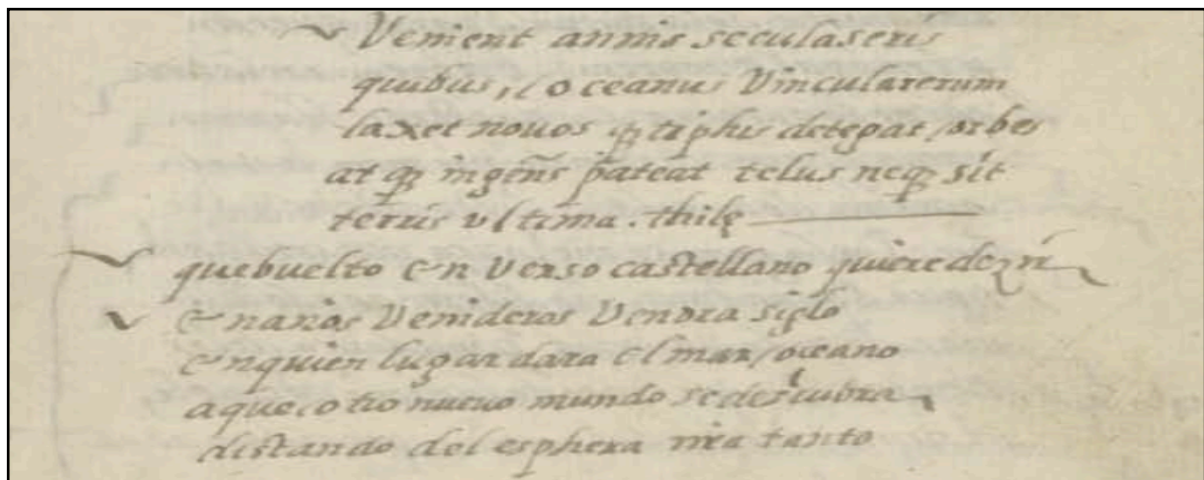 Venient annis seculaseris
quibus, oceanus Vincularerum
laxet nouos qꝫ tiphis detegat, orbes
at qꝫ ingēns pateat telus neqꝫ sit
terris vltima. thile
quebuelto en Verso castellano quieredezir
en años Venideros Vendra siglo
enquien lugar dara el mar, oceano
aque, otro nueuo mundo sedescubra
distando del esphera nr̄a tanto